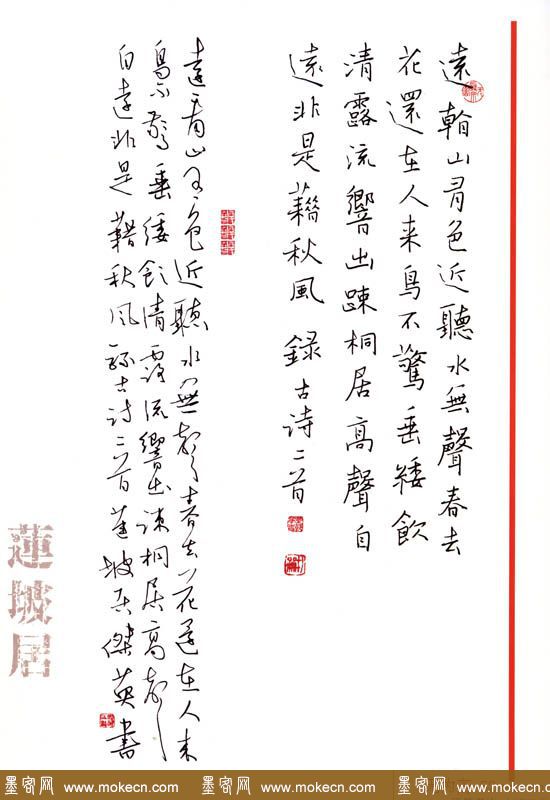 遠看山有色近聽水無聲春去
花還在人来鳥不驚垂緌飲
清露流響出踈桐居高聲自
遠非是藉秋風 錄古诗二首
遠看山有色近聽水無聲春去花還在人来
鳥不驚垂緌飲清露流響出疎桐居高聲
自遠非是藉秋風 錄古诗二首 蓮坡居傑英書
蓮坡居
墨客网 www.mokecn.com 墨客网 www.mokecn.com 墨客网 www.mokecn.com 墨客网